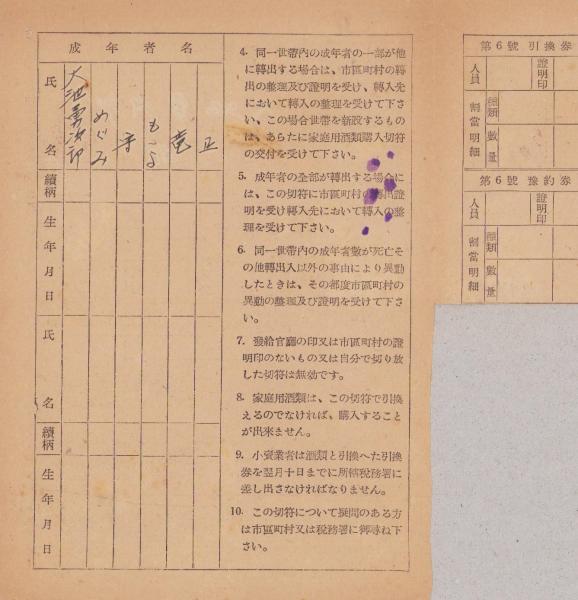 成年者名
氏名
大池勇次郎
めぐみ
守
もよ
竜
正
續柄
生年月日
氏名
續柄
生年月日
4. 同一世帶內の成年者の一部が他
に轉出する場合は、市區町村の轉
出の整理及び證明を受け、轉入先
において轉入の整理を受けて下さ
い、この場合世帶を新設するもの
は、あらたに家庭用酒類購入切符
の交付を受けて下さい。
5. 成年者の全部が轉出する場合に
は、この切符に市區町村の轉出證
明を受け轉入先において轉入の整
理を受けて下さい。
6. 同一世帶內の成年者數が死亡そ
の他轉出入以外の事由により異動
したときは、その都度市區町村の
異動の整理及び證明を受けて下さ
い。
7. 發給官廳の印又は市區町村の證
明印のないもの又は自分で切り放
した切符は無効です。
8. 家庭用酒類は、この切符で引換
えるのでなければ、購入すること
が出來ません。
9. 小賣業者は酒類と引換へた引換
券を翌月十日までに所轄稅務署に
差し出さなければなりません。
10. この切符について疑問のある方
は市區町村又は稅務署に御尋ね下
さい。
第6號引換券
人員
證明印
割當明細
種類
數量
第6號豫約券
人員
證明印
割當明細
種類
數量